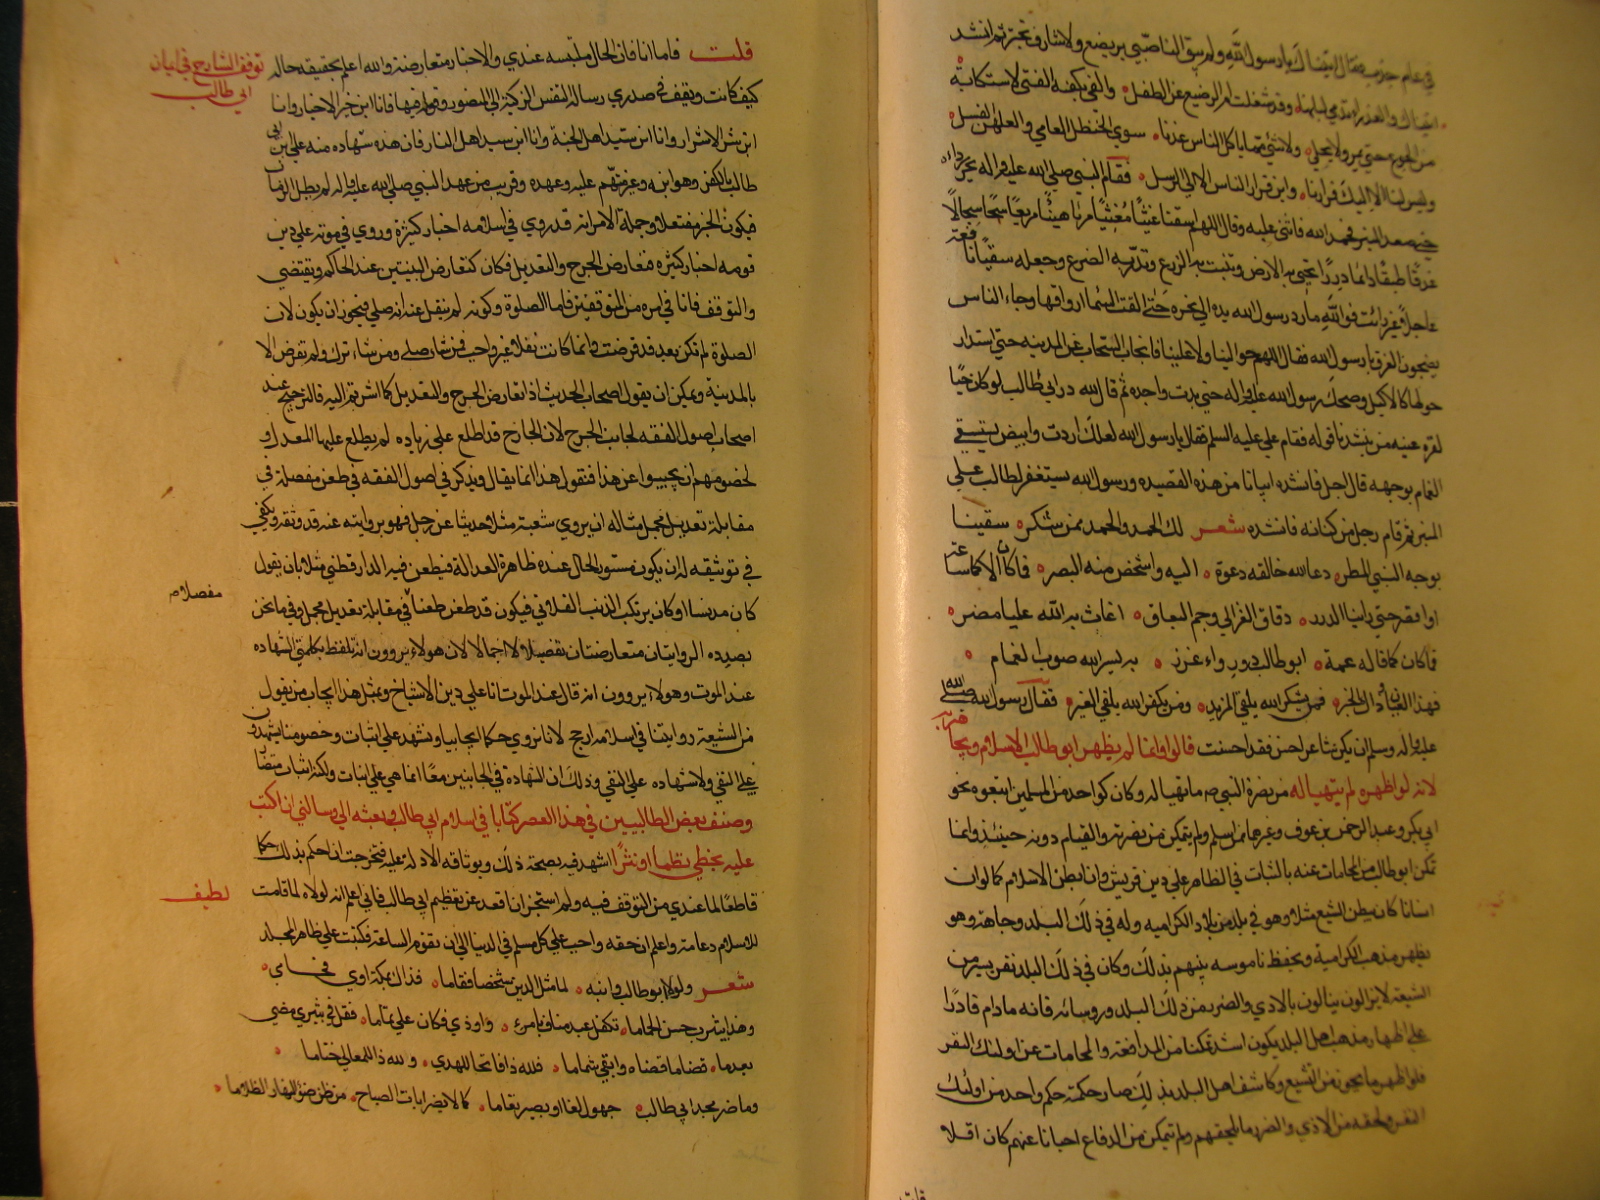 في عام جدب فقال اتيناك يا رسول الله ولم يبق لنا صبي يرضع ولا شارف يجتر ثم انشد
اتيناك والعذراء تدمي لبانها وقد شغلت ام الرضيع عن الطفل والقى بكفيه الفتى لاستكانة
من الجوع حتى ما يمر ولا يحلي ولا شي مما ياكل الناس عندنا سوى الحنظل العامي والعلهز الفسل
وليس لنا الا اليك فرارنا واين فرار الناس الا الى الرسل فقام النبي صلى الله عليه واله يجر رداءه
حتى صعد المنبر فحمد الله واثنى عليه وقال اللهم اسقنا غيثا مغيثا مريا هنيئا مريعا سحا سجالا
غدقا طبقا دائما دررا تحيي به الارض وتنبت به الزرع وتدر به الضرع وجعله سقيا نافعة
عاجلا غير رائث فوالله ما رد رسول الله يده الى نحره حتى القت السماء ارواقها وجاء الناس
يضجون الغرق يا رسول الله فقال اللهم حوالينا ولا علينا فانجاب السحاب عن المدينه حتى استدار
حولها كالاكليل وضحك رسول الله عليه واله حتى بدت نواجده ثم قال لله در ابي طالب لو كان حيا
لقره عينه من ينشدنا قوله فقام علي عليه السلم فقال يا رسول الله لعلك اردت وابيض يستسقي
الغمام بوجهه قال اجل فانشده ابياتا من هذه القصيده ورسول الله يستغفر لطالب على
المنبر ثم قام رجل من كنانه فانشده شعر لك الحمد والحمد ممن شكر سقينا
بوجه النبي المطر دعا الله خالقه دعوة اليه واشخص منه البصر فما كان الا كما ساعة
او اقصر حتى راينا الدرر دقاق العزالي وجم البعاق اغاث به الله عليا مضر
فكان كما قاله عمه ابو طالب ذو رواء غزر به يسر الله صوب الغمام
فهذا العيان وذاك الخبر فمن يشكر الله يلقى المزيد ومن يكفر الله يلقى الغير فقال رسول الله صلى الله
عليه واله وسلم ان يكن شاعر احسن فقد احسنت قالوا وانما لم يظهر ابو طالب الاسلام ويجاهر به
لانه لو اظهره لم يتهيا له من نصرة النبي ص ما تهيا له وكان كواحد من المسلمين اتبعوه نحو
ابي بكر وعبد الرحمن بن عوف وغيرهما ممن اسلم ولم يتمكن من نصرته والقيام دونه حينئذ وانما
تمكن ابو طالب من المحامات عنه بالثبات في الظاهر على دين قريش وان ابطن الاسلام كما لو ان
انسانا كان يبطن التشيع مثلا وهو في بلد من بلاد الكراميه وله في ذلك البلد وجاهة وهو
يظهر مذهب الكرامية ويحفظ ناموسه بينهم بذلك وكان في ذلك البلد نفر يسير من
الشيعة لا يزالون ينالون بالاذى والضرر من ذلك البلد وروسائه فانه ما دام قادرا
على اظهار مذهب اهل البلد يكون اشد تمكنا من المدافعة والمحامات عن اولئك النفر
فلو اظهر ما يجوز من التشيع وكاشف اهل البلد بذلك صار حكمه حكم واحد من اولئك
النفر ولحقه من الاذى والضرر ما يلحقهم ولم يتمكن من الدفاع احيانا عنهم كان اقلا
قلت
قلت فاما انا فان الحال ملتبسه عندي والاخبار متعارضة والله اعلم بحقيقه حاله
توقف الشارح في ايمان
ابي طالب
كيف كانت ويقف في صدري رسالة النفس الزكية الى المنصور وقوله فيها فانا ابن خير الاخيار وانا
ابن شر الاشرار وانا ابن سيد اهل الجنة وانا ابن سيد اهل النار فان هذه شهاده منه على ابي
طالب بالكفر وهو ابنه وغير متهم عليه وعهده وقريب من عهد النبي صلى الله عليه واله لم يطل الزمان
فيكون الخبر مفتعلا وجملة الامر انه قد روي في اسلامه اخبار كثيرة وروي في موته على دين
قومه اخبار كثيره فتعارض الجرح والتعديل فكان كتعارض البينتين عند الحاكم ويقتضي
والتوقف فانا في امره من المتوقفين فاما الصلوة وكونه لم ينقل عنه انه صلى فيجوز ان يكون لان
الصلوة لم تكن بعد قد فرضت وانما كانت نفلا غير واجب فمن شاء صلى ومن شاء ترك ولم تفرض الا
بالمدينة ويمكن ان يقول اصحاب الحديث اذا تعارض الجرح والتعديل كما اشرتم اليه فالترجيح عند
اصحاب اصول الفقه لجانب الجرح لان الجارح قد اطلع على زياده لم يطلع عليها المعدل و
لخصومهم ان يجيبوا عن هذا فنقول هذا انما يقال ويذكر في اصول الفقه في طعن مفصلة في
مقابلة تعديل مجمل مثاله ان يروي شعبة مثلا حديثا عن رجل فهو بروايته عنه قد وثقه ويكفي
في توثيقه له ان يكون مستور الحال عنده ظاهرة العدالة فيطعن فيه الدارقطني مثلا بان يقول
كان مدلسا او كان يرتكب الذنب الفلاني فيكون قد طعن طعنا في مقابلة تعديل مجمل وفيما نحن
مفصلا م
بصدده الروايتان متعارضتان تفصيلا لا اجمالا لان هولاء يروون انه تلفظ بكلمتي الشهاده
عند الموت وهولاء يروون انه قال عند الموت انا على دين الاشياخ وبمثل هذا يجاب من يقول
من الشيعة روايتنا في اسلامه ارجح لانا نروي حكما ايجابيا ونشهد على اثبات وخصومنا يشهدون
على النفي ولا شهاده على النفي وذلك ان الشهادة في الجانبين معا انما هي على اثبات ولكنه اثبات متضاد
وصنف بعض الطالبيين في هذا العصر كتابا في اسلام ابي طالب وبعثه الي وسالني ان اكتب
عليه بخطي نظما او نثرا اشهد فيه بصحة ذلك وبوثاقه الادلة عليه فتحرجت ان احكم بذلك حكما
قاطعا لما عندي من التوقف فيه ولم استجز ان اقعد عن تعظيم ابي طالب فاني اعلم انه لولاه لما قامت
لطيف
للاسلام دعامة واعلم ان حقه واجب على كل مسلم في الدنيا الى ان تقوم الساعة فكتبت على ظاهر المجلد
شعر ولولا ابو طالب وابنه لما مثل الدين شخصا فقاما فذاك بمكة اوى فحامي
وهذا بيثرب جس الحماما تكفل عبد مناف بامرء واودي فكان علي تماما فقل في ثبير مضى
بعد ما قضا ما قضاه وابقى شماما فلله ذا فاتحا للهدى ولله ذا للمعالي ختاما
وما ضر مجد ابي طالب جهول لغا او بصير تعاما كما لا يضر اياة الصباح من ظن ضوء النهار الظلاما